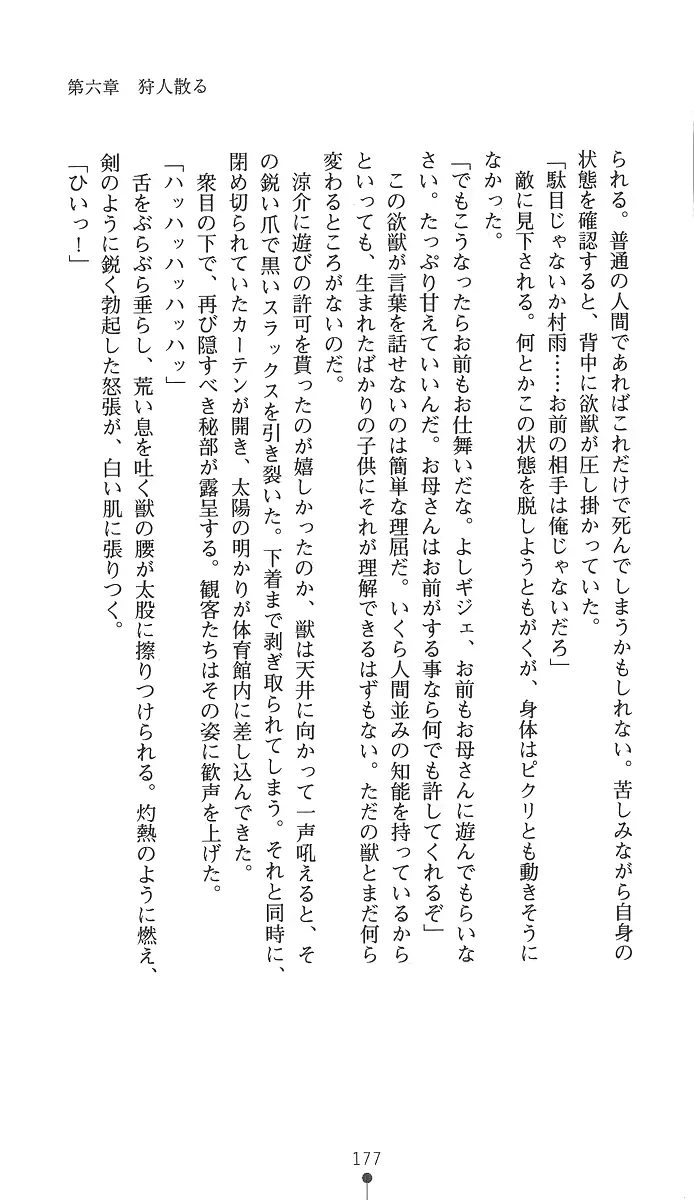 第六章　狩人散る
られる。普通の人間であればこれだけで死んでしまうかもしれない。苦しみながら自身の
状態を確認すると、背中に欲獣が圧し掛かっていた。
「駄目じゃないか村雨……お前の相手は俺じゃないだろ」
敵に見下される。何とかこの状態を脱しようともがくが、身体はピクリとも動きそうに
なかった。
「でもこうなったらお前もお仕舞いだな。よしギジェ、お前もお母さんに遊んでもらいな
さい。たっぷり甘えていいんだ。お母さんはお前がする事なら何でも許してくれるぞ」
この欲獣が言葉を話せないのは簡単な理屈だ。いくら人間並みの知能を持っているから
といっても、生まれたばかりの子供にそれが理解できるはずもない。ただの獣とまだ何ら
変わるところがないのだ。
涼介に遊びの許可を貰ったのが嬉しかったのか、獣は天井に向かって一声吼えると、そ
の鋭い爪で黒いスラックスを引き裂いた。下着まで剥ぎ取られてしまう。それと同時に、
閉め切られていたカーテンが開き、太陽の明かりが体育館内に差し込んできた。
衆目の下で、再び隠すべき秘部が露呈する。観客たちはその姿に歓声を上げた。
「ハッハッハッハッハッ」
舌をぶらぶら垂らし、荒い息を吐く獣の腰が太股に擦りつけられる。灼熱のように燃え、
剣のように鋭く勃起した怒張が、白い肌に張りつく。
「ひいっ！」
177